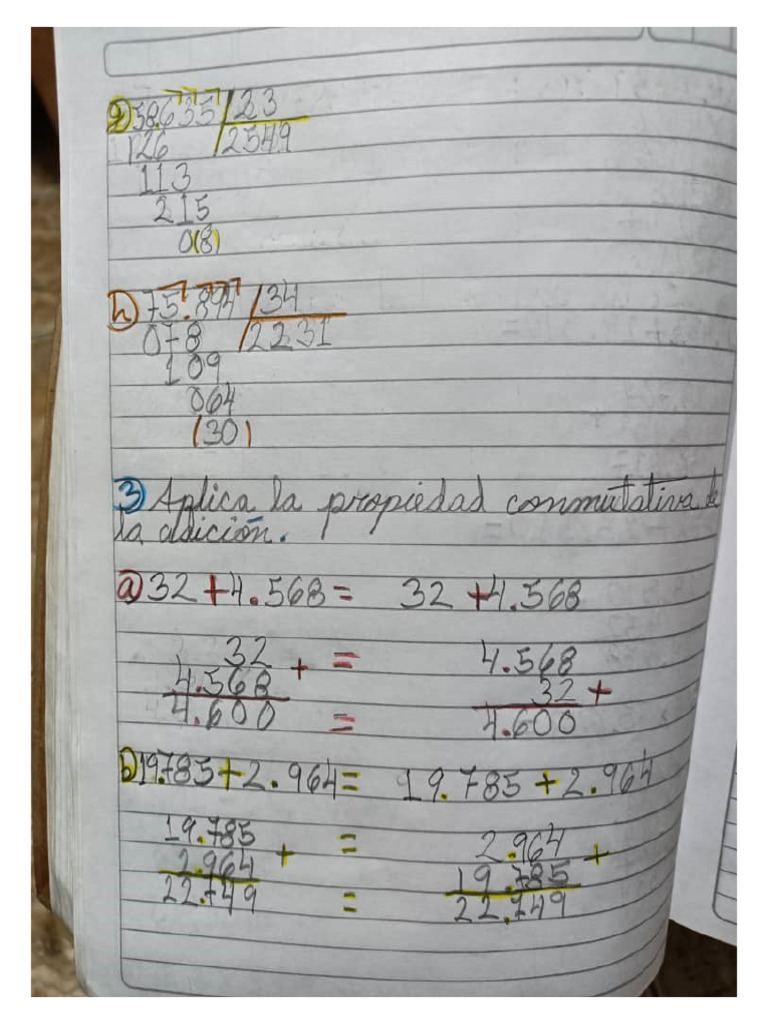 g) 58.635 / 23
126 / 2549
113
215
0(8)
h) 75.894 / 34
078 / 2231
109
064
(30)
3) Aplica la propiedad conmutativa de
la adición.
a) 32 + 4.568 = 32 + 4.568
32 + = 4.568
4.568 32 +
4.600 = 4.600
b) 19.785 + 2.964 = 19.785 + 2.964
19.785 = 2.964 +
2.964 + 19.785
22.749 = 22.749